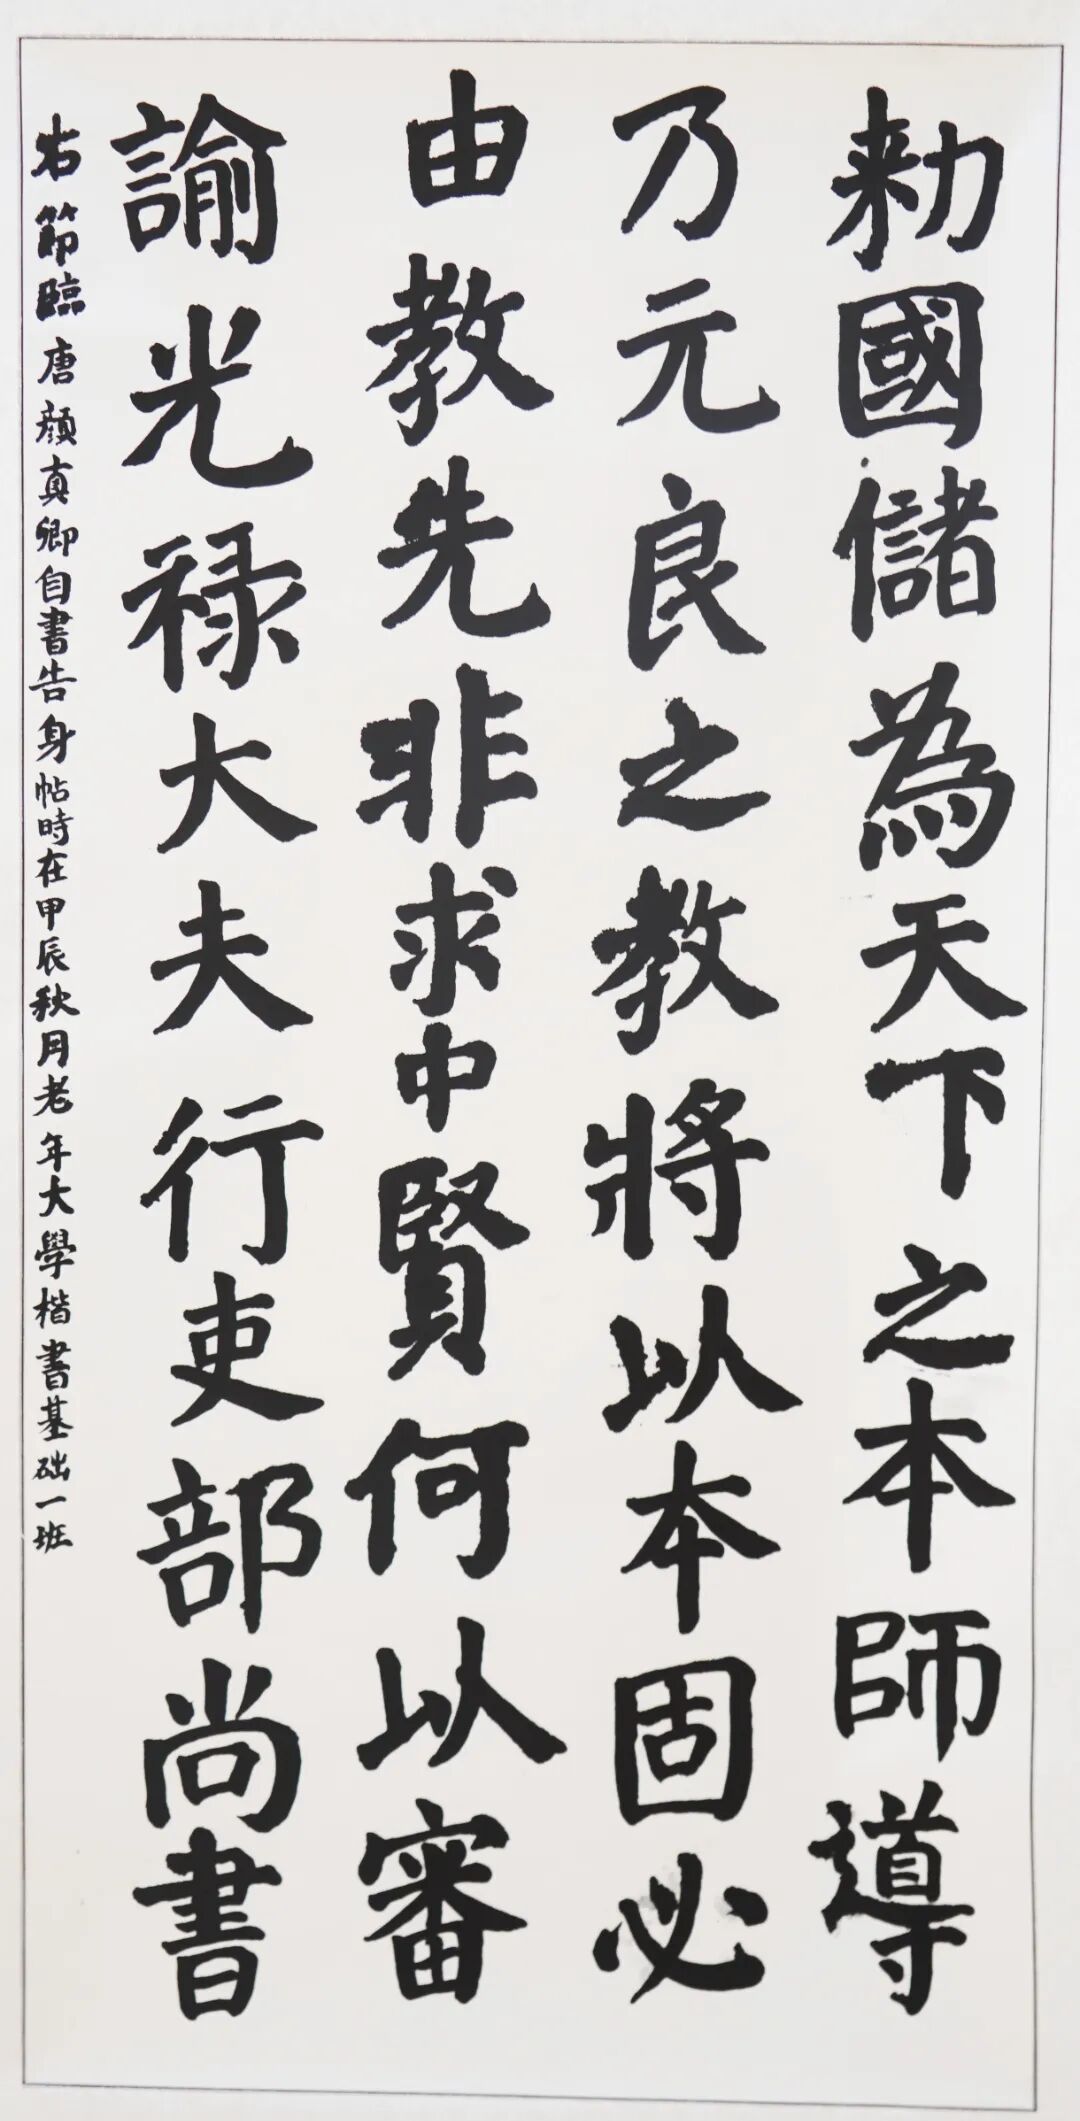 勑國儲為天下之本師導
乃元良之教將以本固必
由教先非求中賢何以審
諭光禄大夫行吏部尚書
右節臨唐顏真卿自書告身帖時在甲辰秋月老年大學楷書基础一班